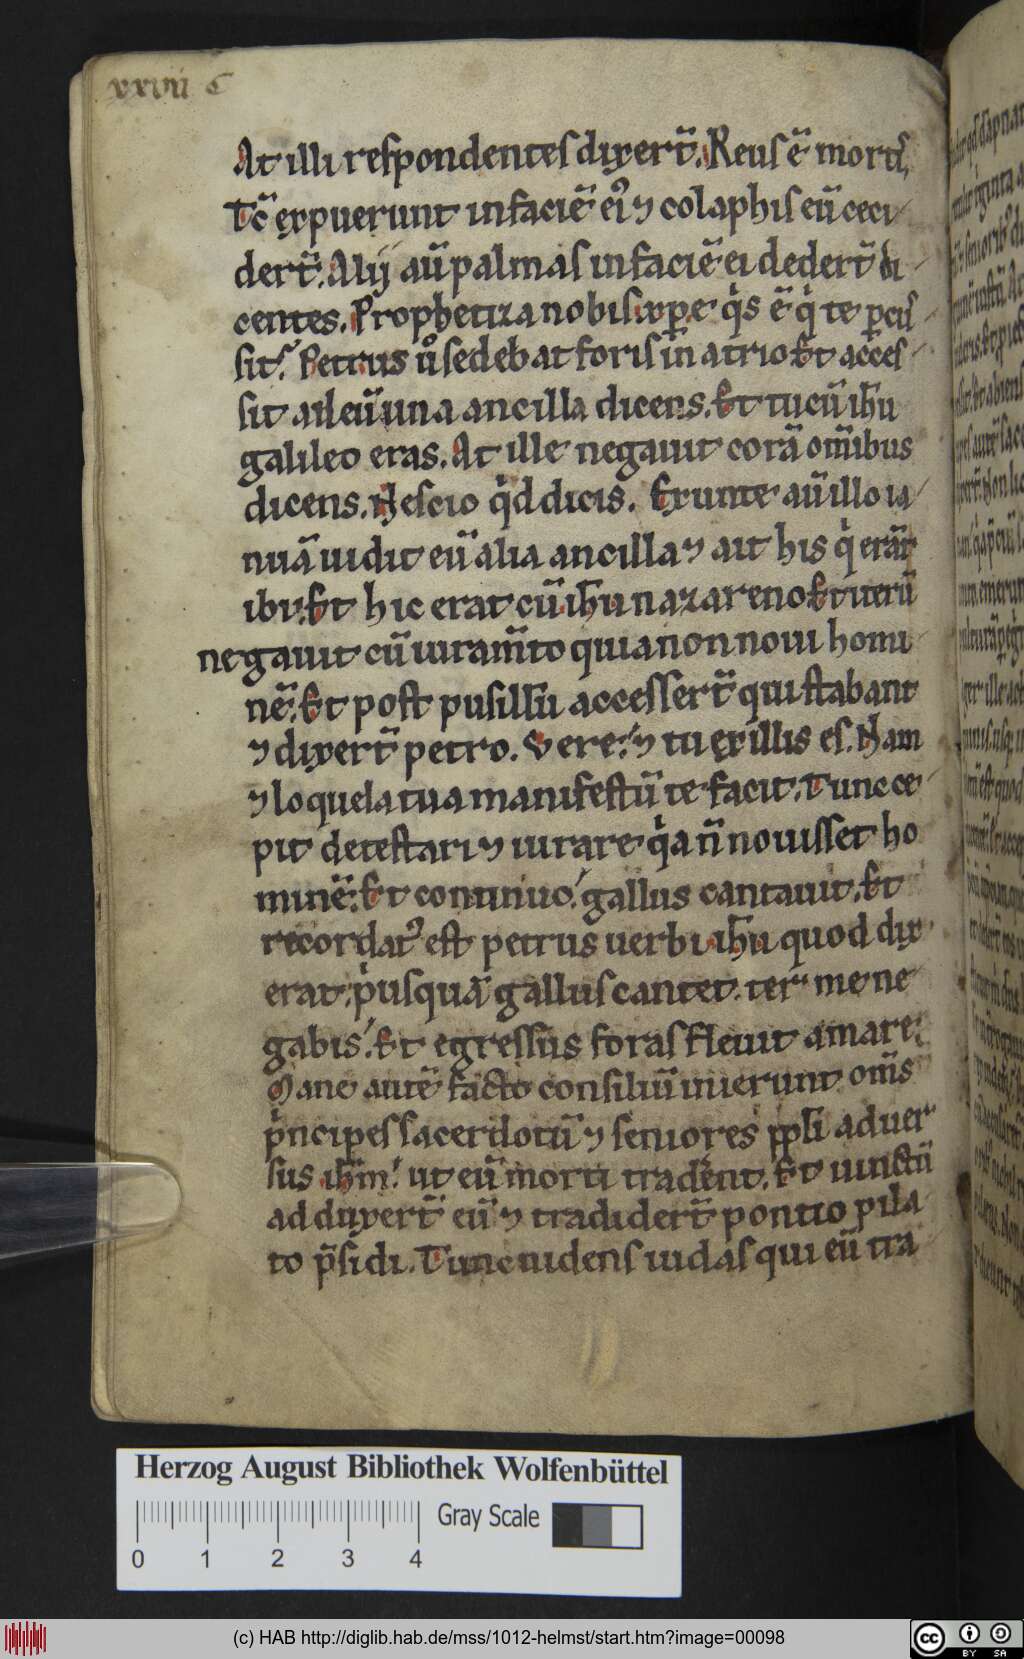 xxvii C
At illi respondentes dixer̄t. Reus ē mortis,
Tc̄ expuerunt in faciē ei⁹ ⁊ colaphis eū ceci
der̄t. Alij aū palmas in faciē ei deder̄t di
centes. Prophetiza nobis xp̄e qⁱs ē qⁱ te ꝑcus
sit. Petrus ů sedebat foris in atrio Et acces
sit ad eū una ancilla dicens. Et tu cū ihū
galileo eras. At ille negauit corā om̄ibus
dicens. Nescio qⁱd dicis. Exunte aū illo ia
nuā uidit eū alia ancilla ⁊ ait his qⁱ erāt
ibi. Et hic erat cū ihū nazareno Et iterū
negauit cū iuram̄to quia non noui homi
nē. Et post pusillū accesser̄t qui stabant
⁊ dixer̄t petro. Vere ⁊ tu ex illis es. Nam
⁊ loquela tua manifestū te facit. Tunc ce
pit detestari ⁊ iurare qⁱa n̄ nouisset ho
minē. Et continuo gallus cantauit. Et
recordat᷒ est petrus uerbi ihū quod dix
erat. pⁱusquā gallus cantet. ter me ne
gabis. Et egressus foras fleuit amare.
Mane autē facto consiliū inierunt om̄s
pⁱncipes sacerdotū ⁊ seniores ppl̄i aduer
sus ihm̄. ut eū morti tradent. Et uinctū
adduxer̄t eū ⁊ tradider̄t pontio pila
to p̄sidi. Tunc uidens iudas qui eū tra
Herzog August Bibliothek Wolfenbüttel
Gray Scale
0 1 2 3 4
(c) HAB http://diglib.hab.de/mss/1012-helmst/start.htm?image=00098
cc BY SA